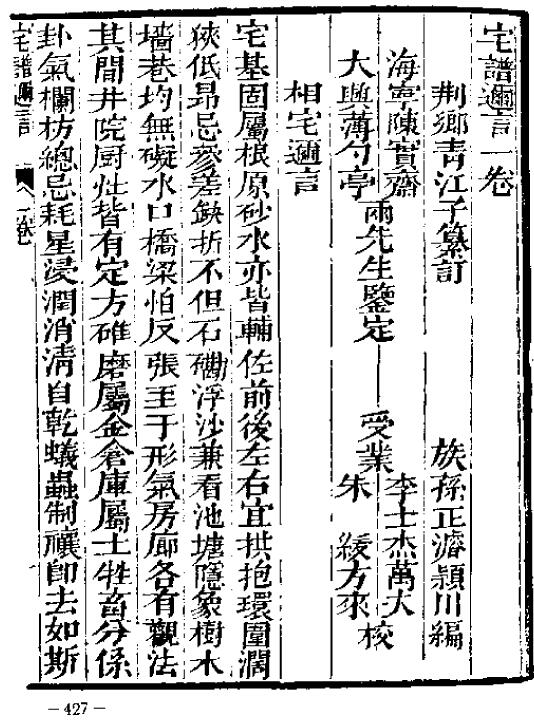 宅譜邇言一卷
荆鄉青江子纂訂 族孫正濬穎川編
海寧陳實齋
大興薄勺亭
兩先生鑒定 受業
李士杰萬夫
朱 綬方來
校
相宅邇言
宅基固屬根原砂水亦皆輔佐前後左右宜拱抱環圍濶
狹低昻忌參差缺折不但石磡浮沙兼看池塘隱象樹木
墻巷均無礙水口橋梁怕反張至于形氣房廊各有觀法
其間井院厨灶皆有定方碓磨屬金倉庫屬土牲畜分係
卦氣欄枋總忌耗星浸潤消淸自乾蟻蟲制禳卽去如斯
宅譜邇言 一卷
－427－